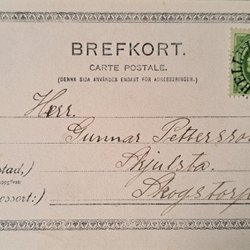 BREFKORT.
CARTE POSTALE.
(DENNA SIDA ANVÄNDES ENDAST FÖR ADRESSERINGEN.)
Herr.
Gunnar Pettersso
stad,)
Skogstorp
ssort:)